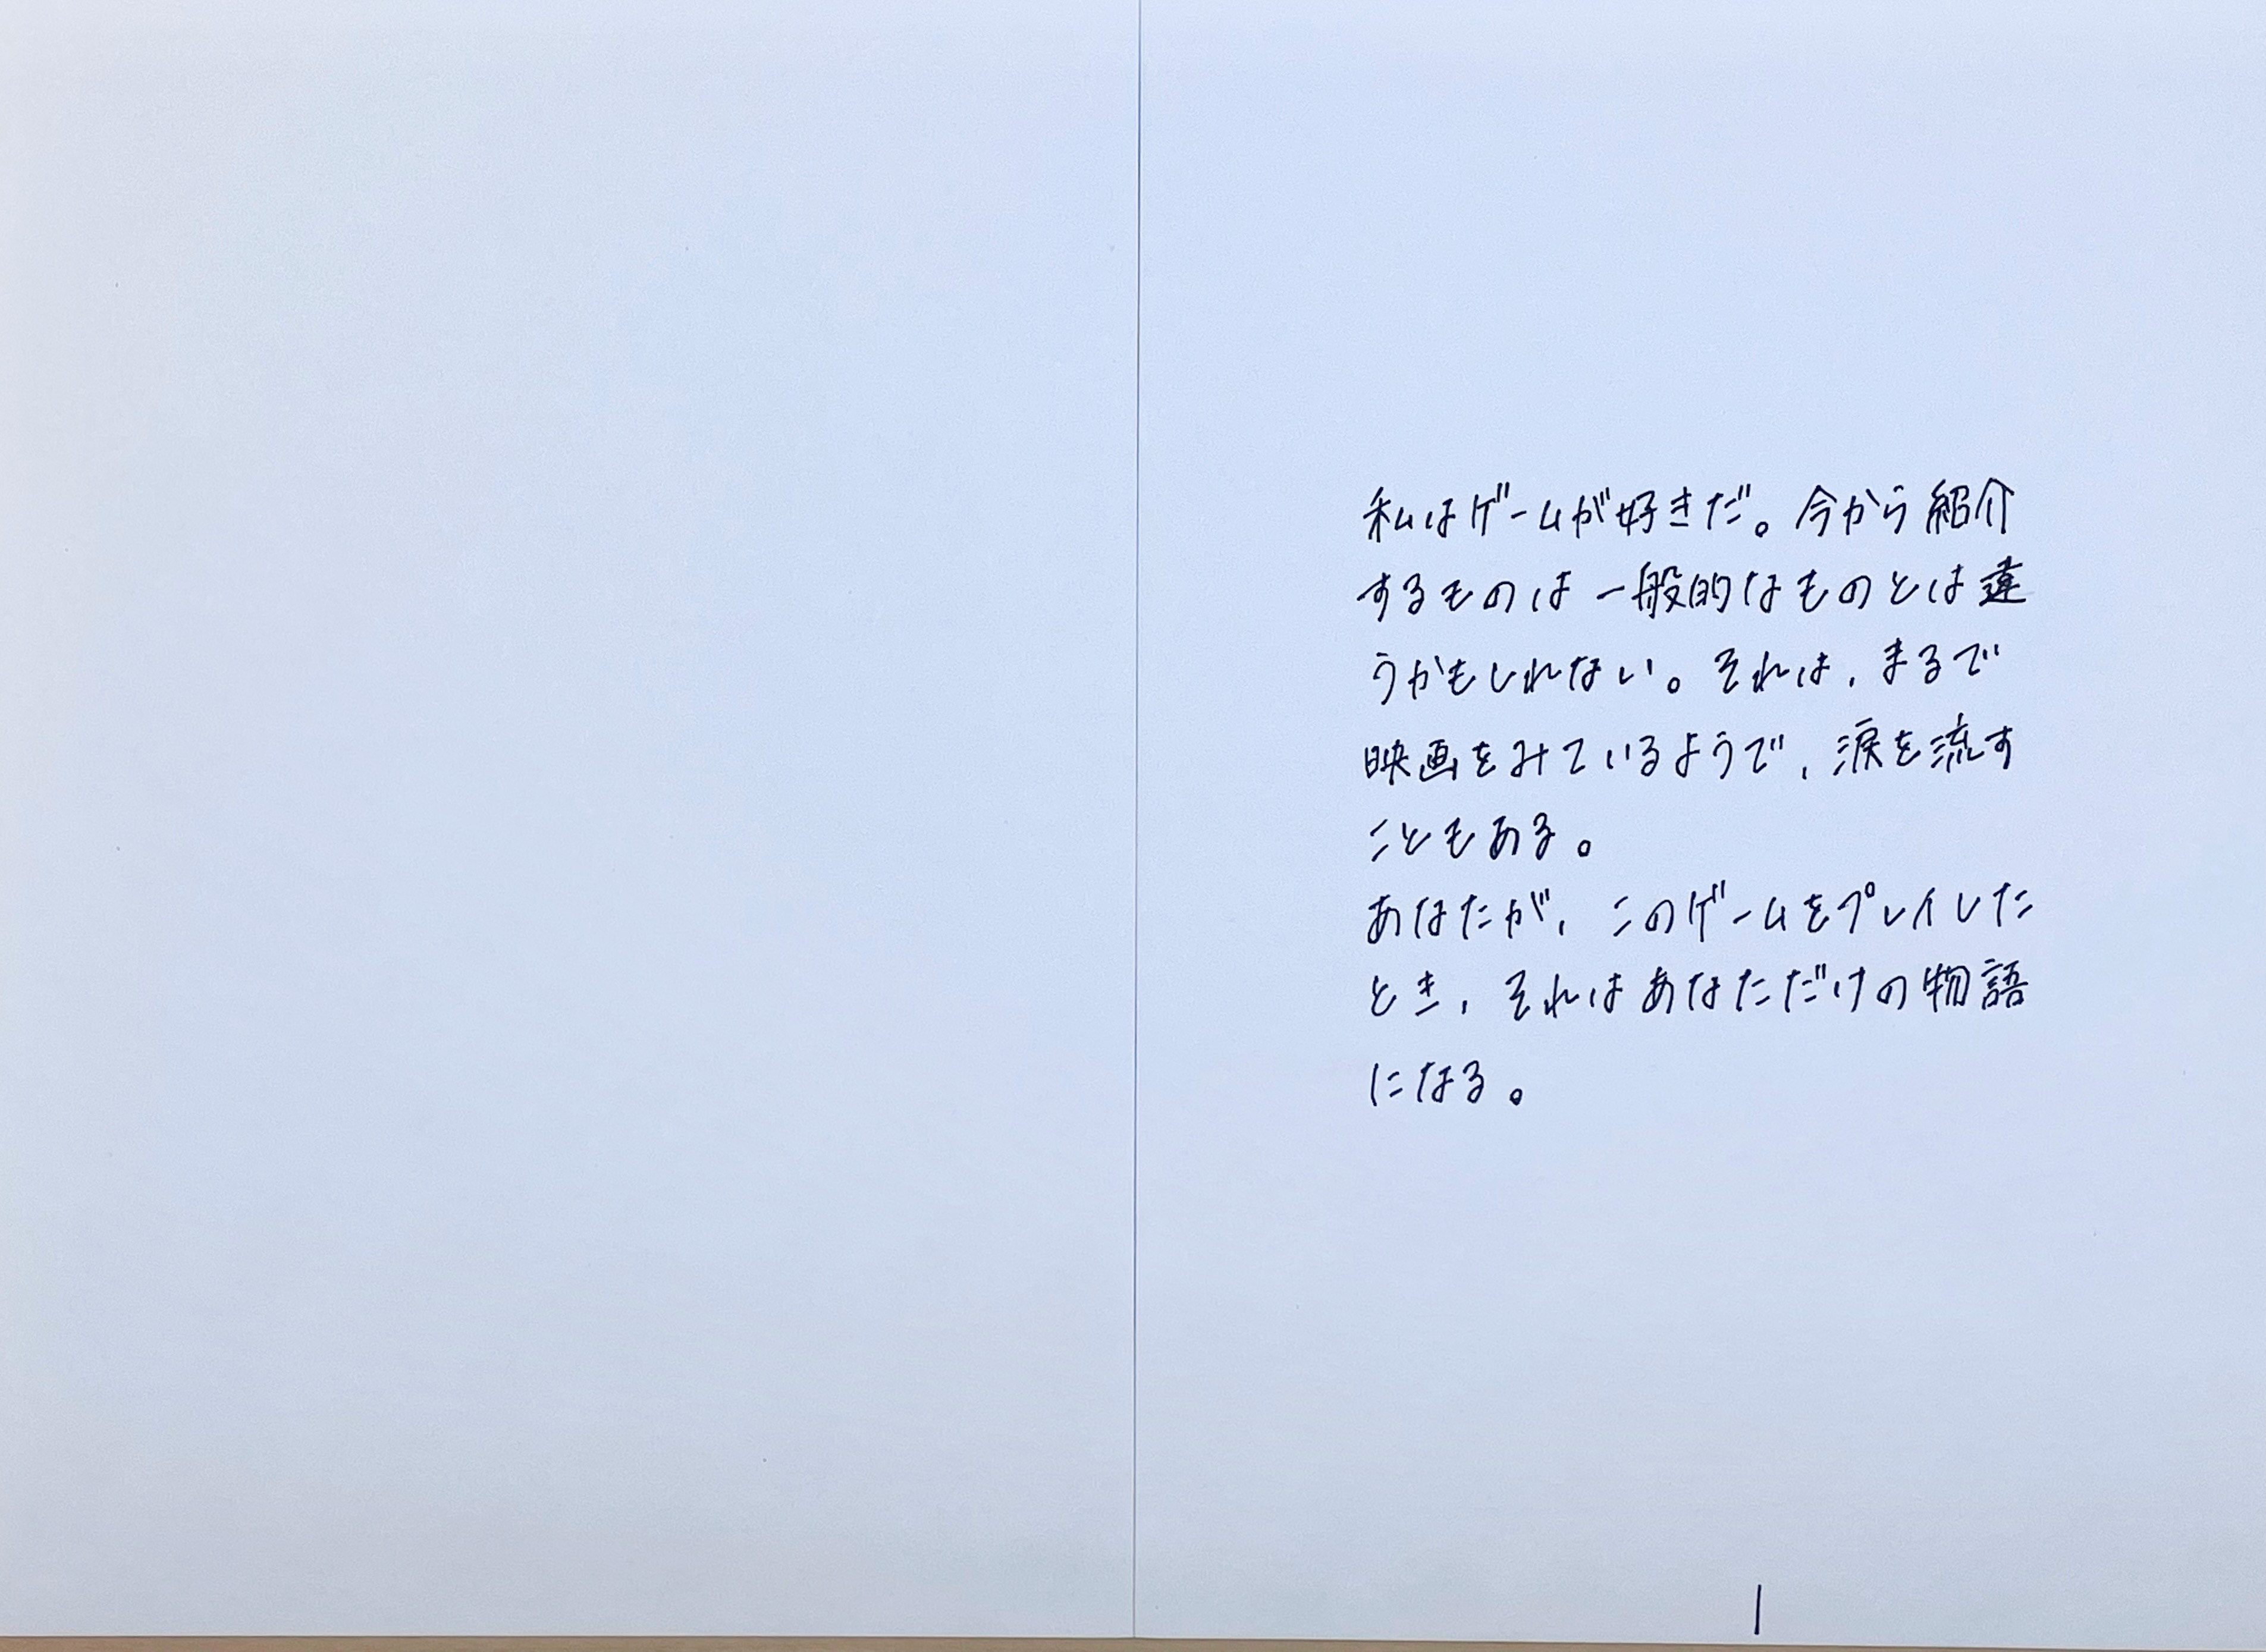 私はゲームが好きだ。今から紹介
するものは一般的なものとは違
うかもしれない。それは、まるで
映画をみているようで、涙を流す
こともある。
あなたが、このゲームをプレイした
とき、それはあなただけの物語
になる。
1